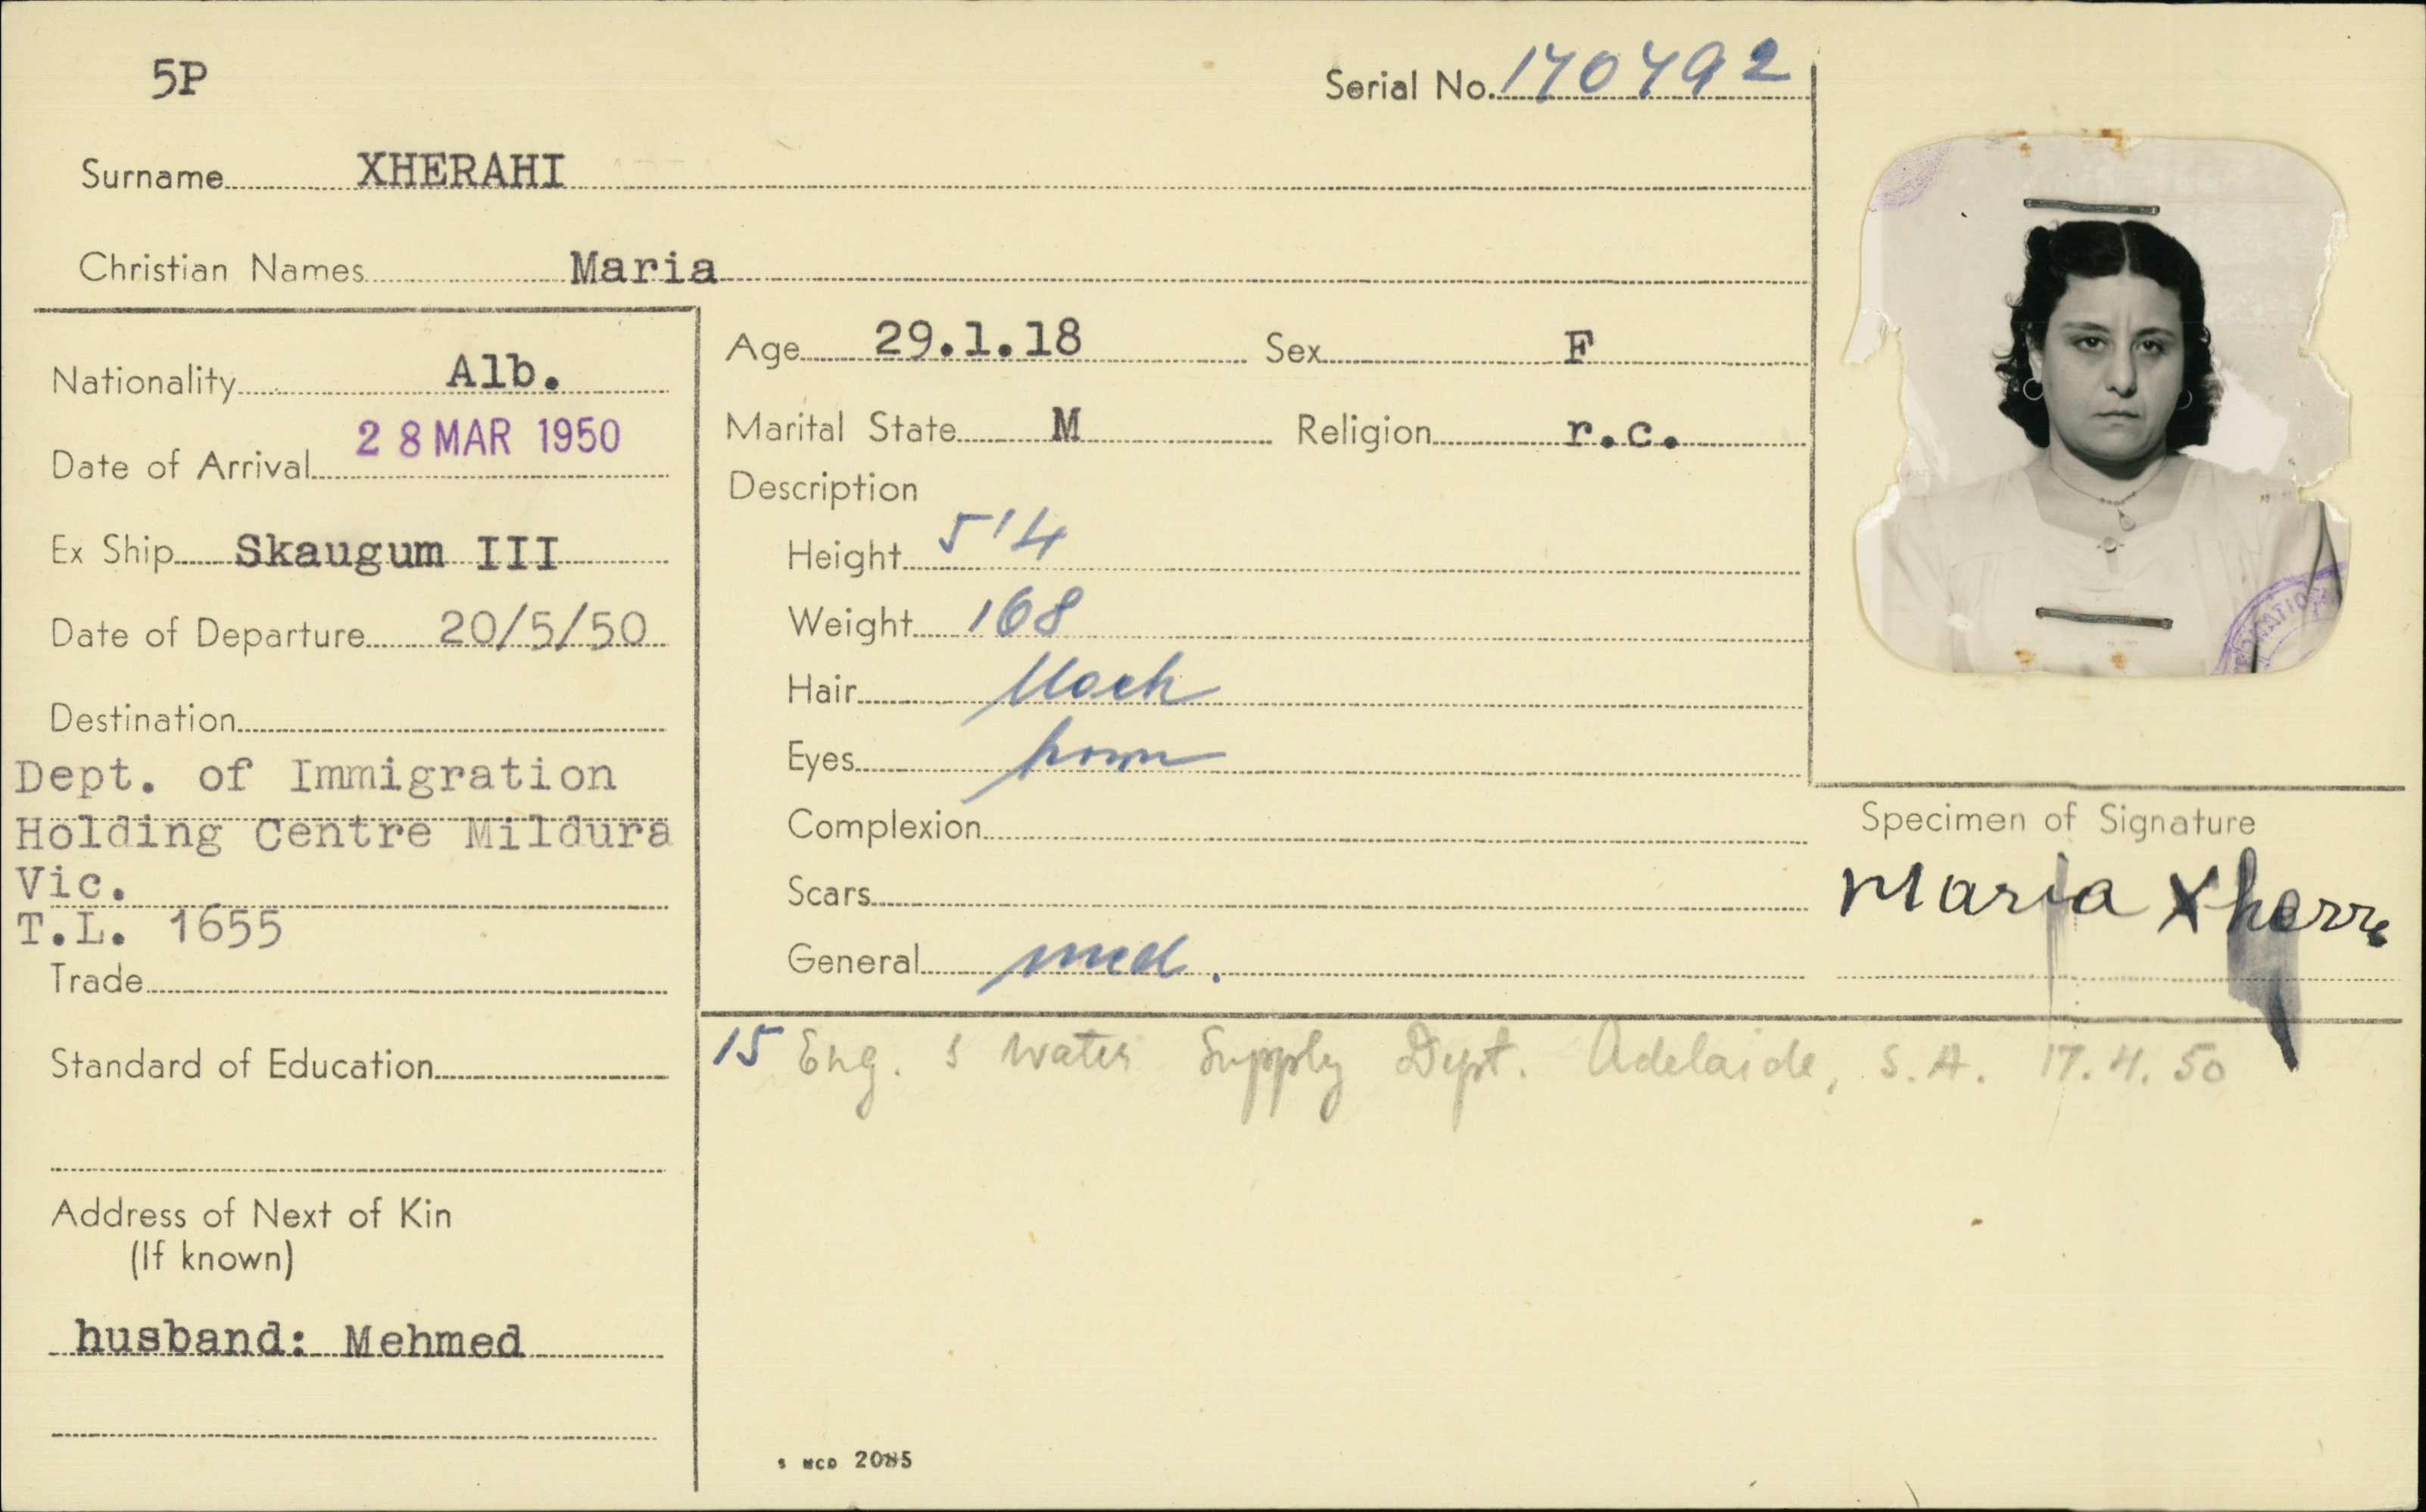 5P
Serial No. 170792
Surname XHERAHI
Christian Names Maria
Nationality Alb.
Date of Arrival 28 MAR 1950
Ex Ship Skaugum III
Date of Departure 20/5/50
Destination
Dept. of Immigration
Holding Centre Mildura
Vic.
T.L. 1655
Trade
Standard of Education
Address of Next of Kin
(If known)
husband: Mehmed
Age 29.1.18 Sex F
Marital State M Religion r.c.
Description
Height 5'4
Weight 168
Hair black
Eyes brown
Complexion
Scars
General med.
Specimen of Signature
Maria Xherra
15 Eng. & Water Supply Dept. Adelaide, S.A. 17.4.50
S MCD 2085